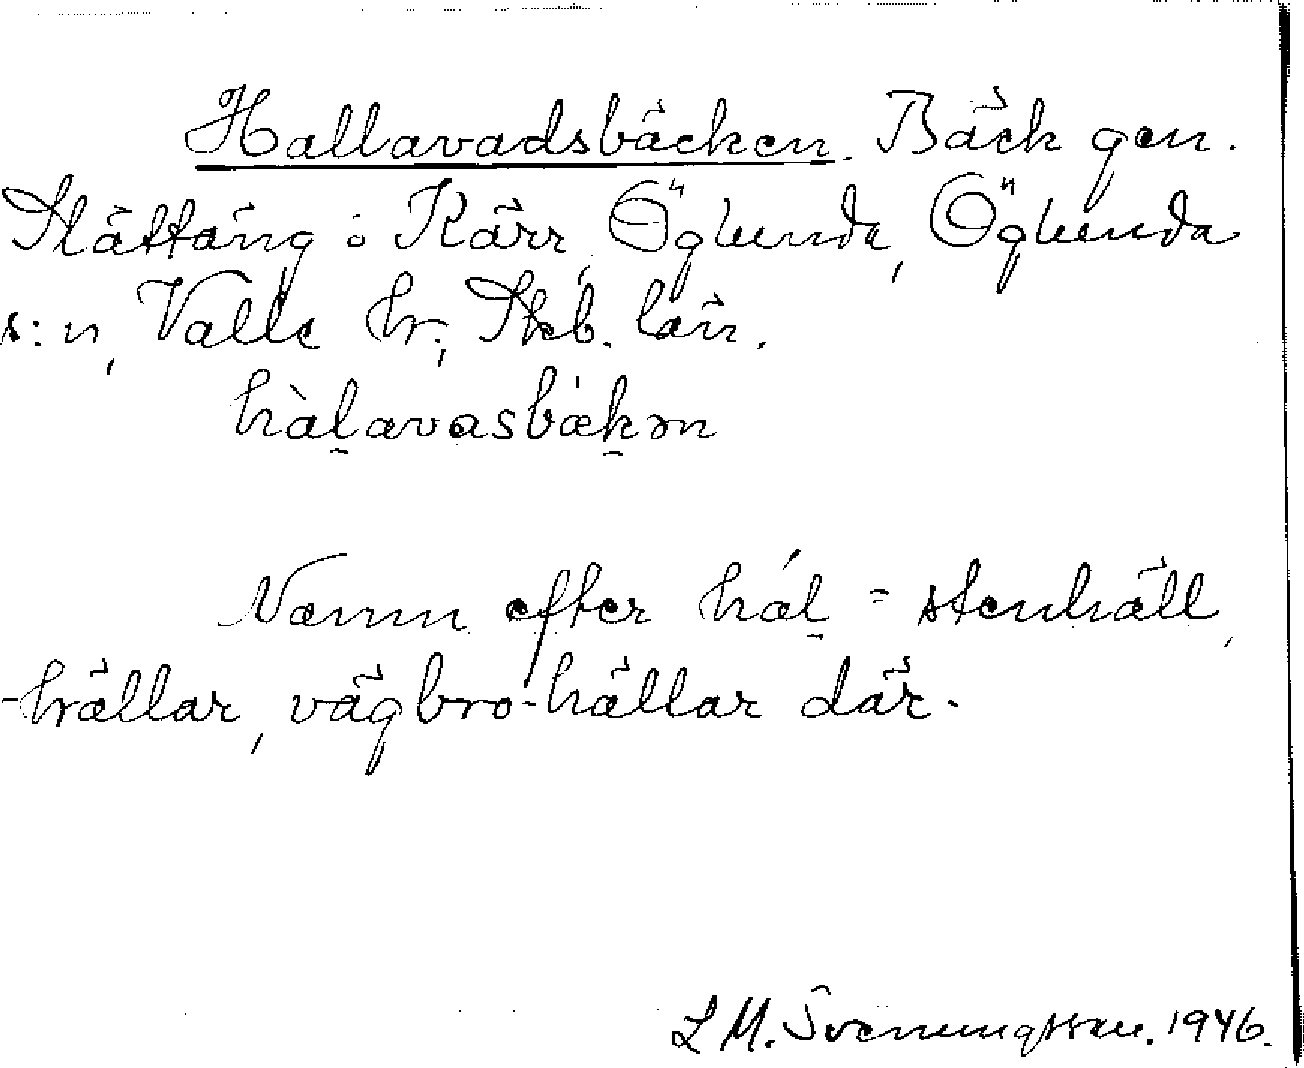 Hallavadsbäcken. Bäck gen.
Slättäng i Kärr, Öglunda, Öglunda
s:n, Valle hr; Skb. län.
hàl̠avasbæk̠ən
Namn efter hál̠ = stenhäll,
-hällar, vägbro-hällar där.
L M. Svenungsson. 1946.